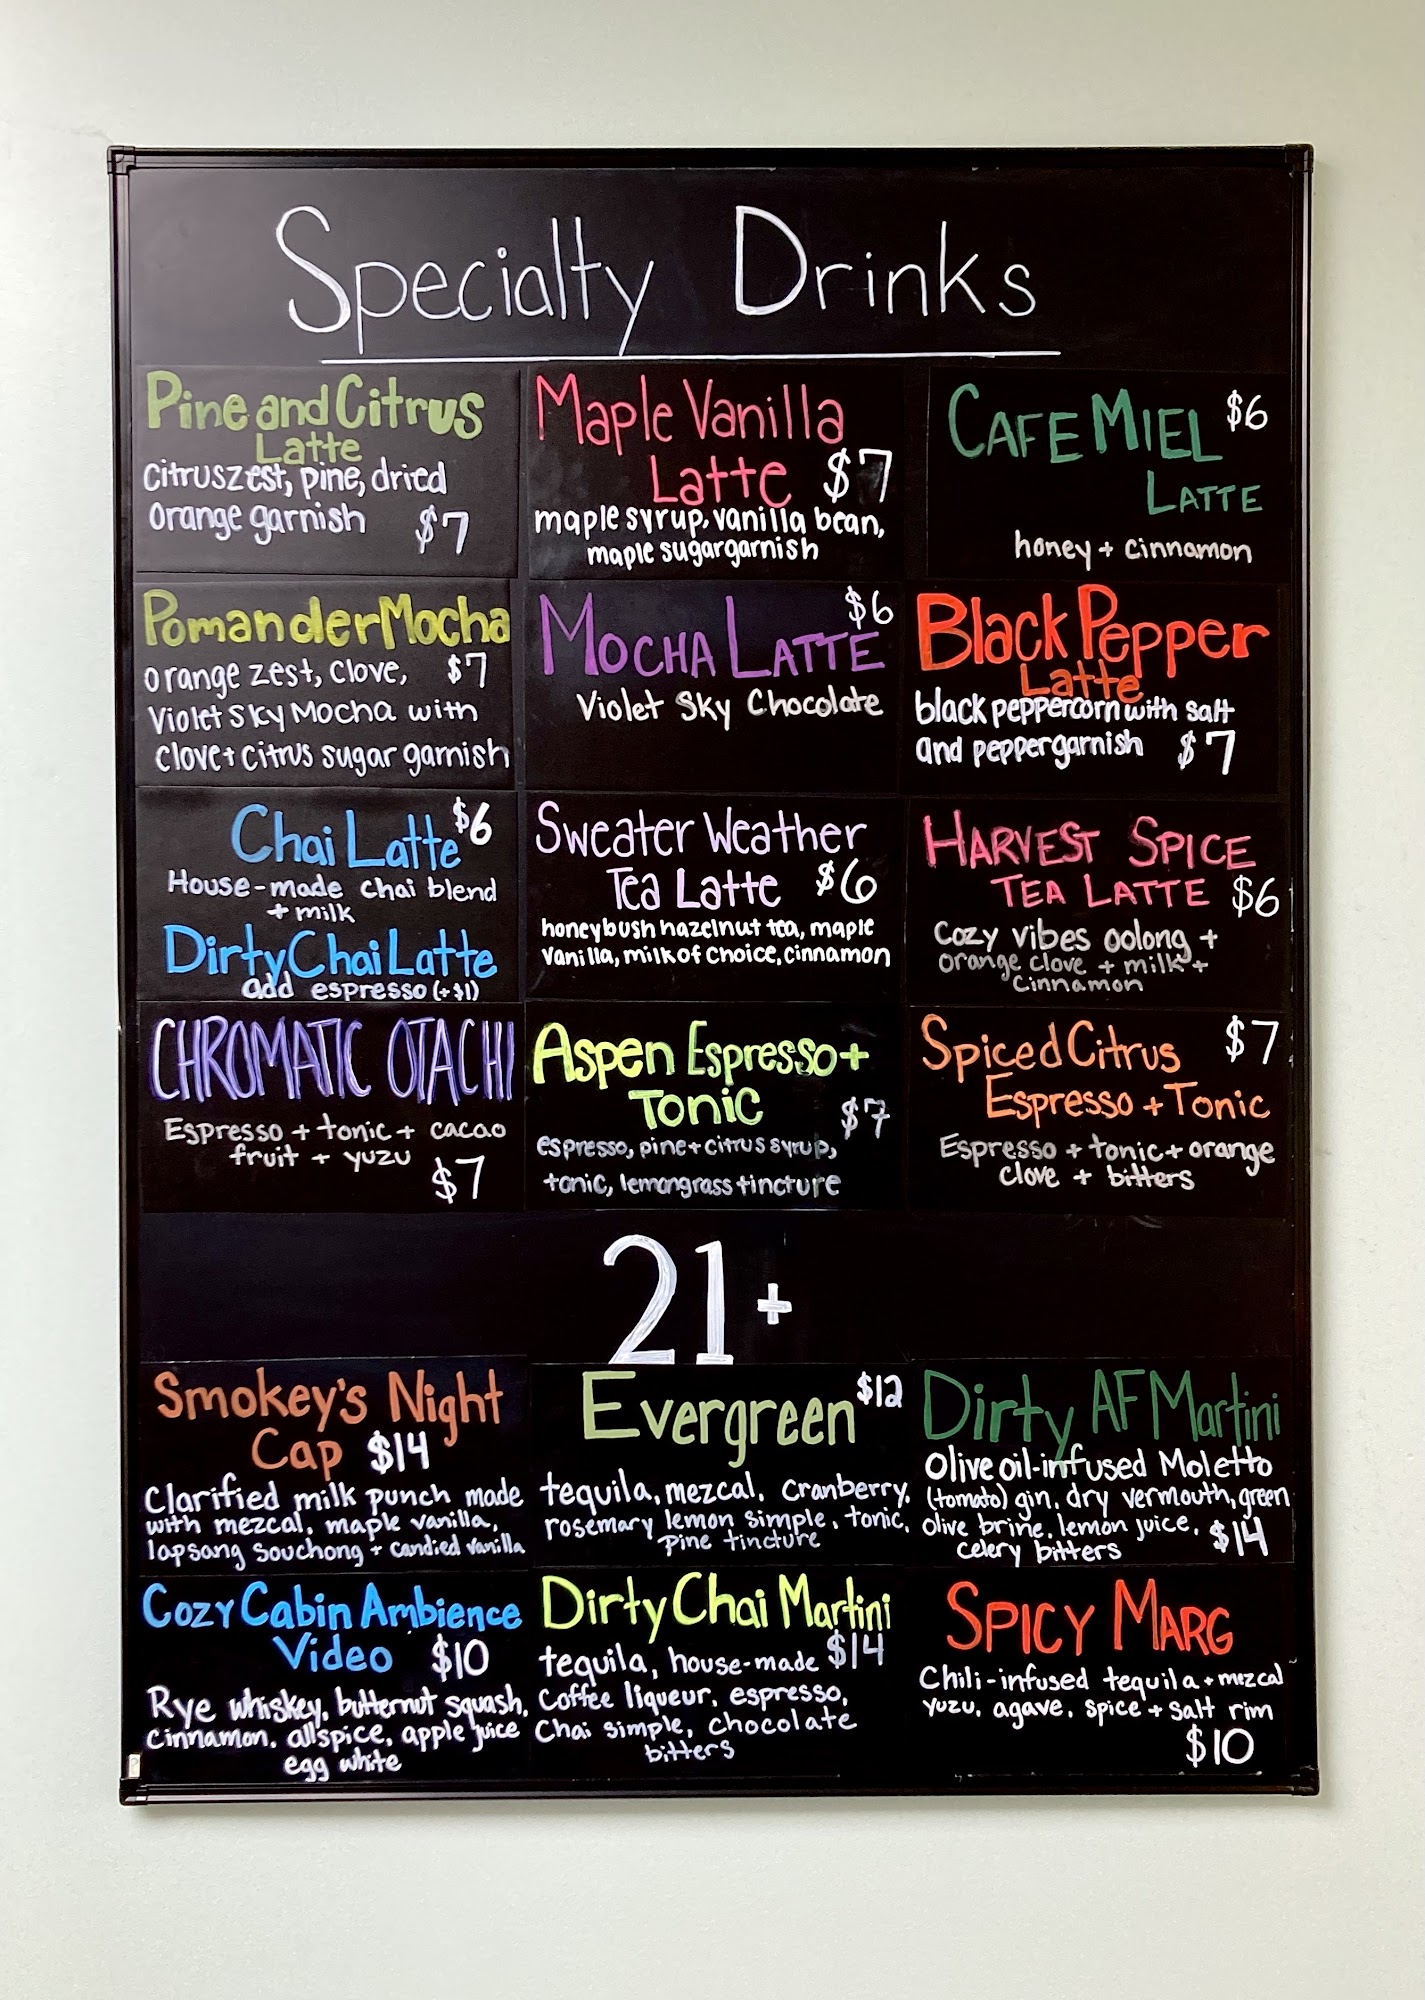 Specialty Drinks
Pine and Citrus
Latte
Citrus zest, pine, dried
orange garnish $7
Maple Vanilla
Latte $7
maple syrup, vanilla bean,
maple sugar garnish
CAFE MIEL $6
LATTE
honey + cinnamon
Pomander Mocha
orange zest, clove, $7
Violet Sky Mocha with
clove + citrus sugar garnish
$6
MOCHA LATTE
Violet Sky Chocolate
Black Pepper
Latte
black peppercorn with salt
and pepper garnish $7
Chai Latte $6
House-made chai blend
+ milk
Dirty Chai Latte
add espresso (+$1)
Sweater Weather
Tea Latte $6
honeybush hazelnut tea, maple
vanilla, milk of choice, cinnamon
HARVEST SPICE
TEA LATTE $6
Cozy vibes oolong +
orange clove + milk +
cinnamon
CHROMATIC OTACHI
Espresso + tonic + cacao
fruit + yuzu
$7
Aspen Espresso +
Tonic $7
espresso, pine + citrus syrup,
tonic, lemongrass tincture
Spiced Citrus $7
Espresso + Tonic
Espresso + tonic + orange
clove + bitters
21+
Smokey's Night
Cap $14
Clarified milk punch made
with mezcal, maple vanilla,
lapsang souchong + candied vanilla
Evergreen $12
tequila, mezcal, cranberry,
rosemary lemon simple, tonic,
pine tincture
Dirty AF Martini
Olive oil-infused Moletto
(tomato) gin, dry vermouth, green
olive brine, lemon juice, $14
celery bitters
Cozy Cabin Ambience
Video $10
Rye whiskey, butternut squash,
cinnamon, allspice, apple juice
egg white
Dirty Chai Martini
tequila, house-made $14
coffee liqueur, espresso,
Chai simple, chocolate
bitters
SPICY MARG
Chili-infused tequila + mezcal
yuzu, agave, spice + salt rim
$10